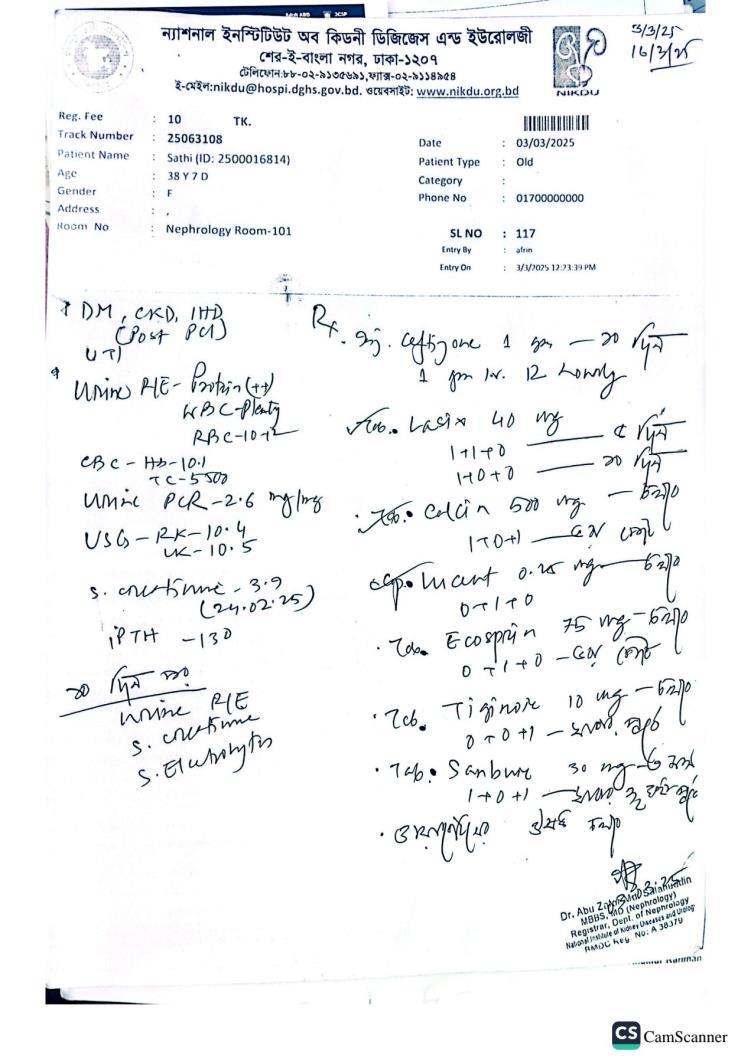 ন্যাশনাল ইনস্টিটিউট অব কিডনী ডিজিজেস এন্ড ইউরোলজী
শের-ই-বাংলা নগর, ঢাকা-১২০৭
টেলিফোন:৮৮-০২-৯১৩৫৬৯১,ফ্যাক্স-০২-৯১১৪৯৫৪
ই-মেইল:nikdu@hospi.dghs.gov.bd. ওয়েবসাইট: www.nikdu.org.bd
NIKDU
3/3/25
Reg. Fee : 10 TK.
Track Number : 25063108
Patient Name : Sathi (ID: 2500016814)
Age : 38 Y 7 D
Gender : F
Address : ,
Room No : Nephrology Room-101
Date : 03/03/2025
Patient Type : Old
Category :
Phone No : 01700000000
SL NO : 117
Entry By : afrin
Entry On : 3/3/2025 12:23:39 PM
DM, CKD, IHD
(Post PCI)
UTI
Urine R/E - Protein (++)
WBC-Plenty
RBC-10-12
CBC - Hb-10.1
TC-5500
Urine PCR -2.6 mg/mg
USG - RK-10.4
LK-10.5
s. creatinine - 3.9
(24.02.25)
iPTH -130
Urine R/E
s. creatinine
s. Electrolytes
Rx.
Inj. Ceftizone 1 gm — ১০ দিন
1 gm iv. 12 hourly
Tab. Lasix 40 mg
1+1+0 — ৫ দিন
1+0+0 — ১০ দিন
Tab. Calcin 500 mg — চলবে
1+0+1
Cap. 0.25 mg — চলবে
0+1+0
Tab. Ecosprin 75 mg — চলবে
0+1+0
Tab. Tiginore 10 mg — চলবে
0+0+1
Tab. Sanbure 30 mg
1+0+1
Dr. Abu Salahuddin
MBBS, MD (Nephrology)
Registrar, Dept. of Nephrology
National Institute of Kidney Diseases and Urology
BMDC Reg. No: A 38379
Rahman
CS CamScanner